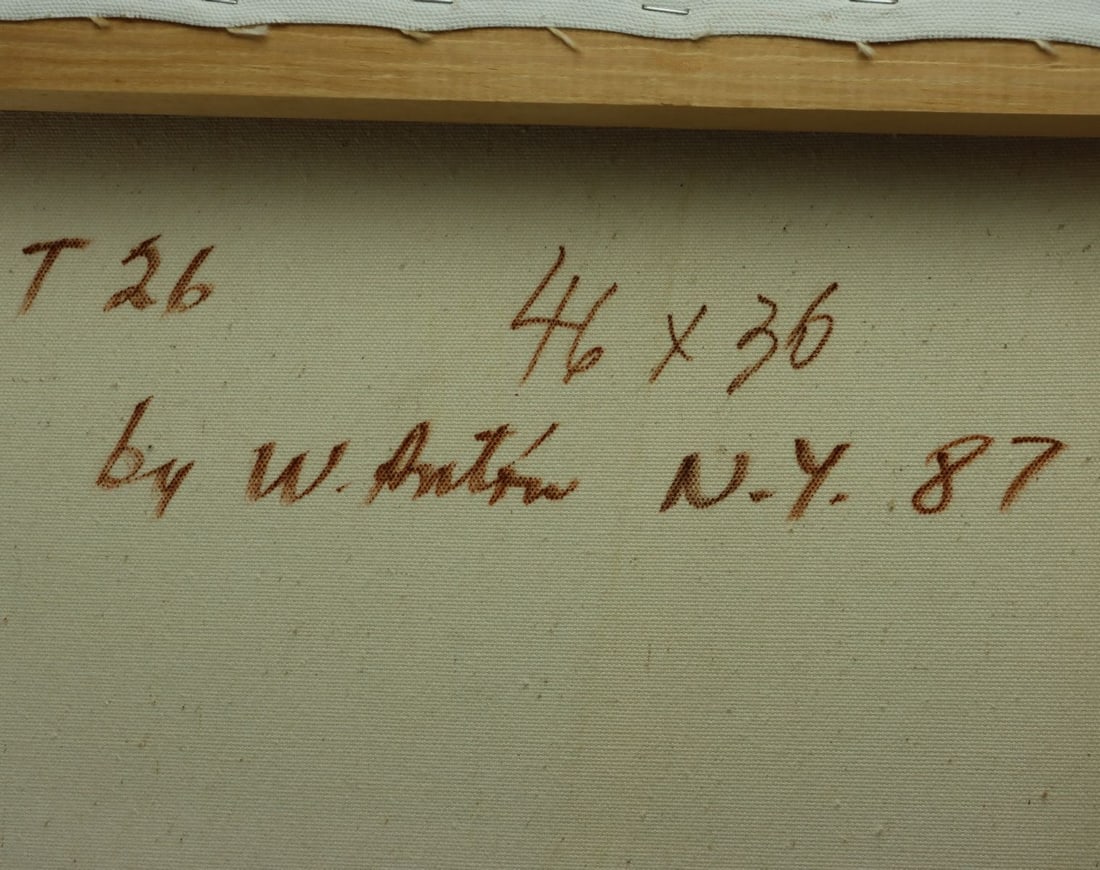 T 26 46 x 36
by W. Antón N.Y. 87